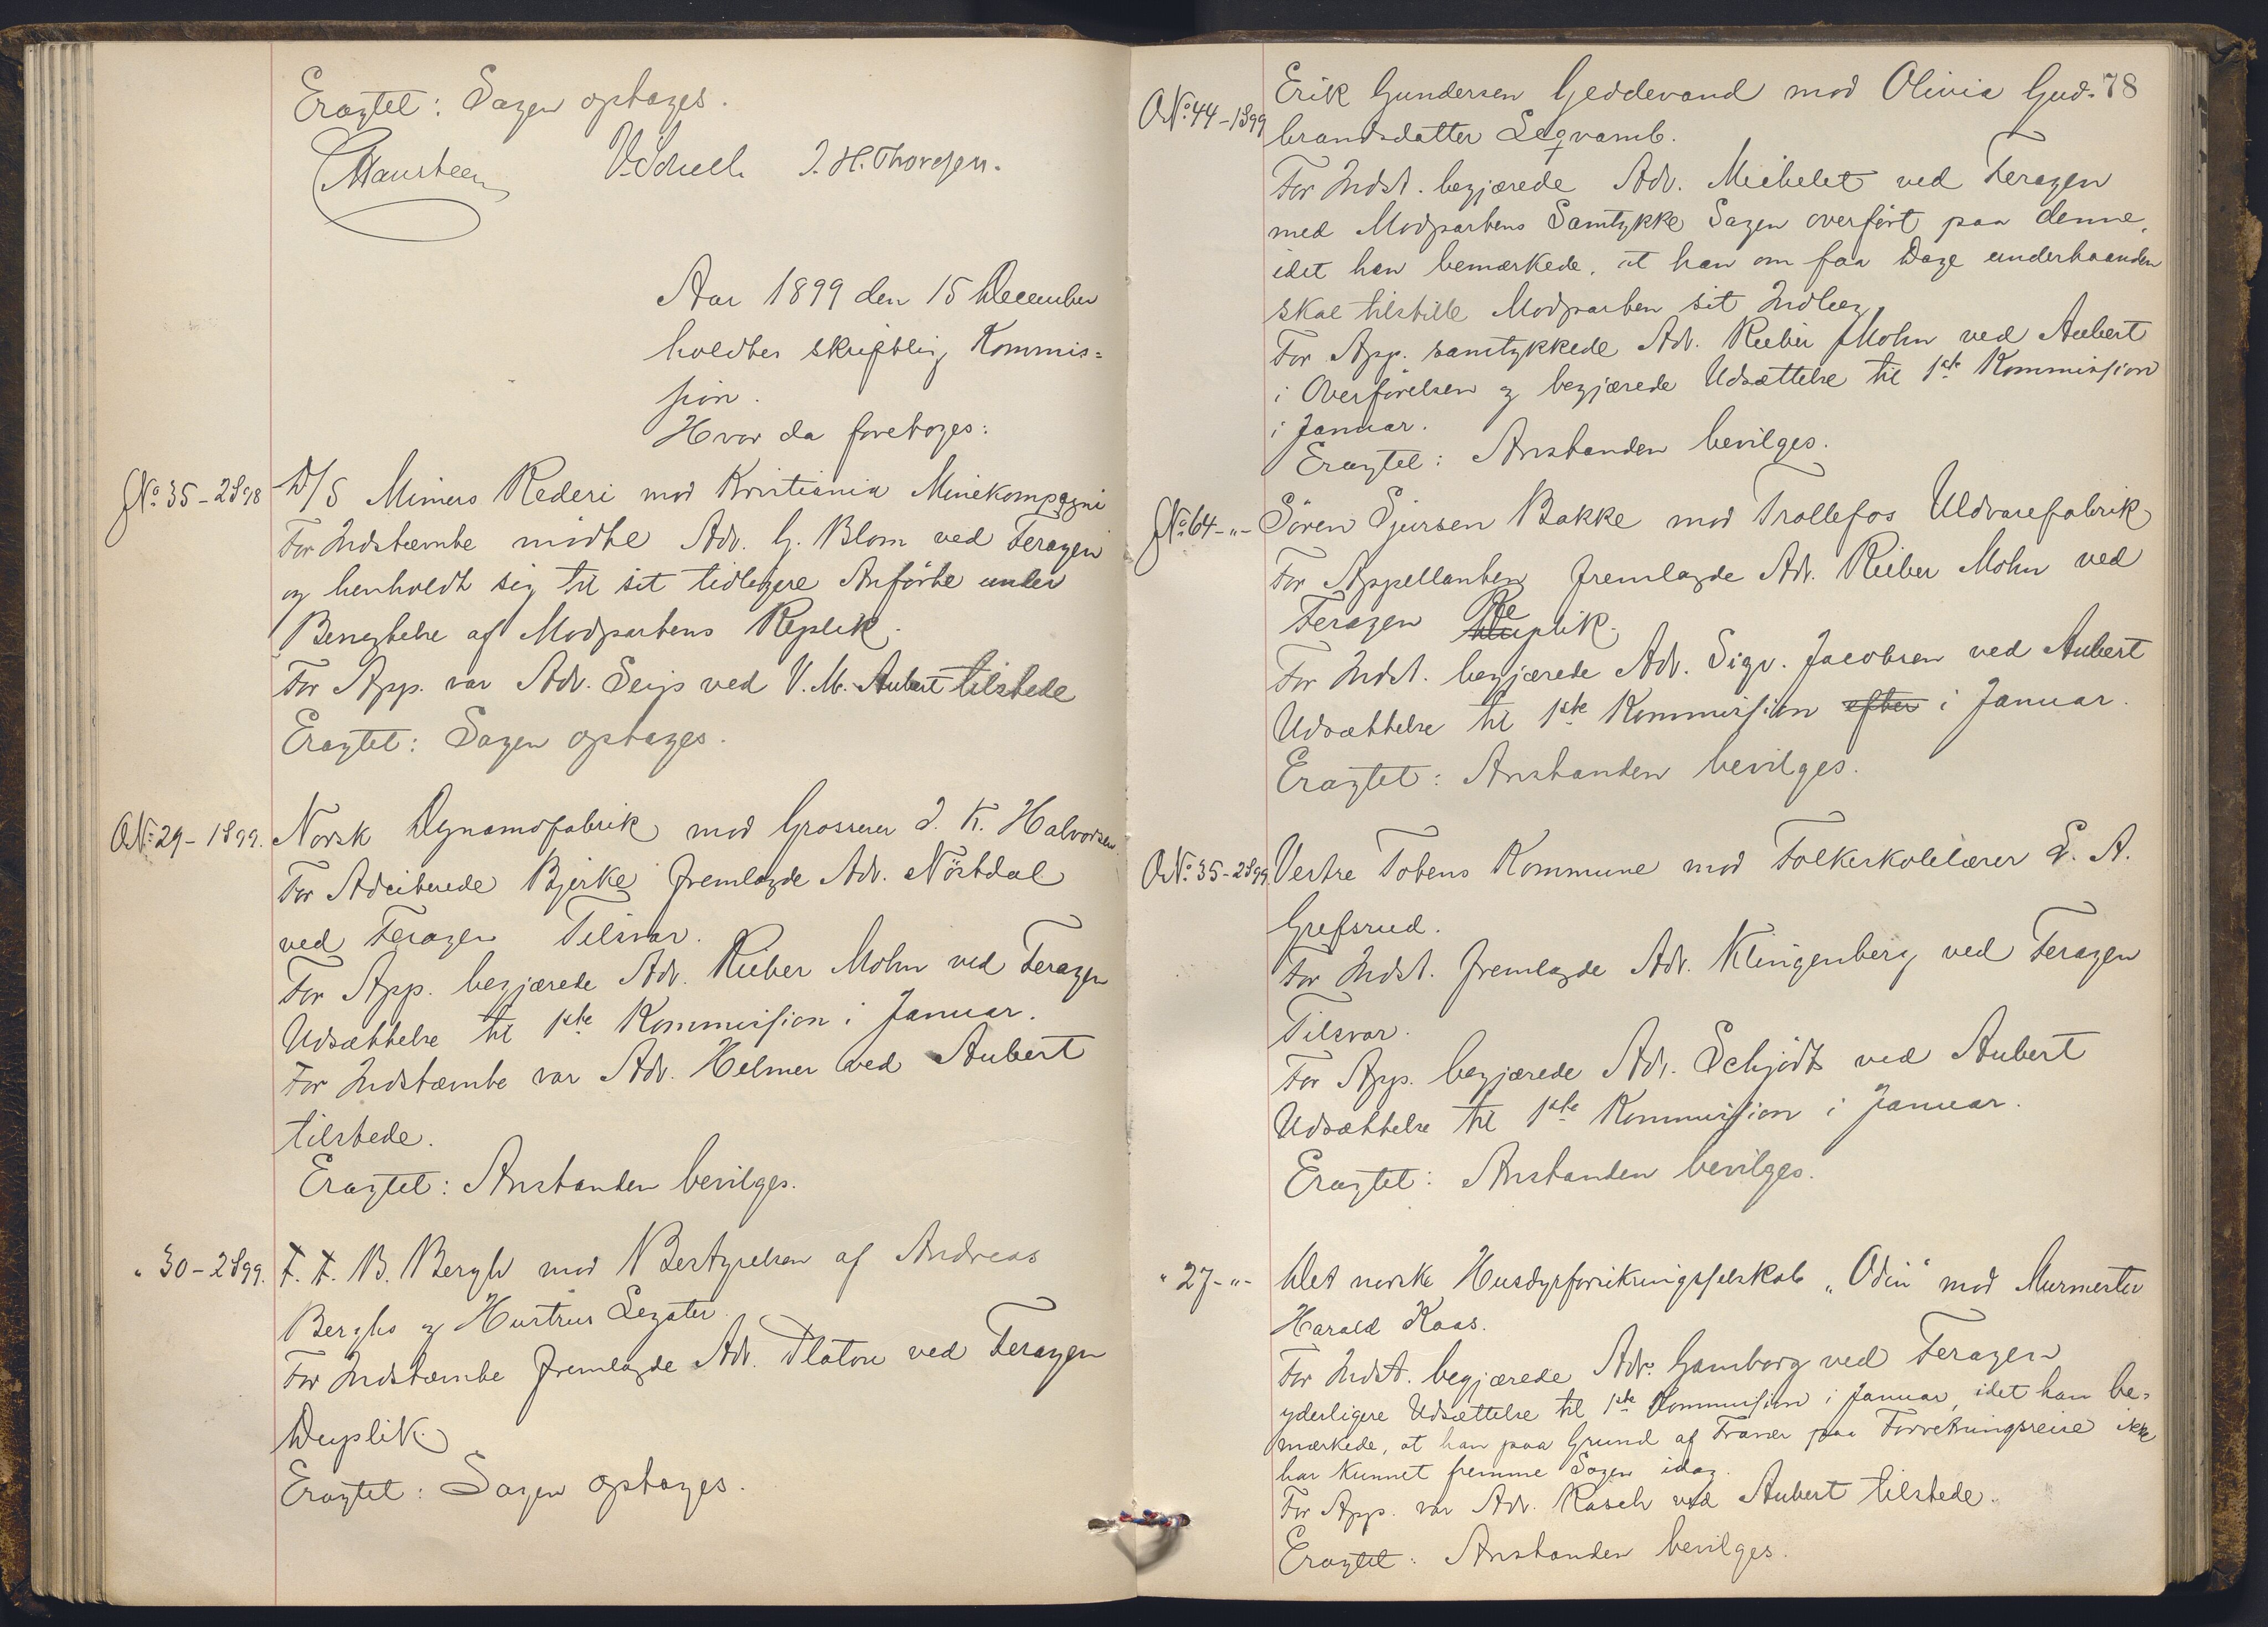 Eragtet: Sagen optages.
V. Scheel. I. H. Thoresen.
Aar 1899 den 15 December
holdtes skriftlig Kommis=
sion.
Hvor da foretoges:
No. 35-2S98 D/S Mimers Rederi mod Kristiania Minekompagni
For Indstævnte mödte Adv. G. Blom ved Feragen
og henholdt sig til sit tidligere Anförte under
Benegtelse af Modpartens Replik.
For App. var Adv. Seip ved V. M. Aubert tilstede
Eragtet: Sagen optages.
No. 29-1S99. Norsk Dynamofabrik mod Grosserer I. K. Halvorsen
For Adciterede Bjerke fremlagde Adv. Nöstdal
ved Feragen Tilsvar.
For App. begjærede Adv. Rieber Mohn ved Feragen
Udsættelse til 1ste Kommission i Januar.
For Indstævnte var Adv. Helmer ved Aubert
tilstede.
Eragtet: Anstanden bevilges.
" 30-2S99. F. F. B. Bergh mod Bestyrelsen af Andreas
Berghs og Hustrus Legater.
For Indstævnte fremlagde Adv. Platou ved Feragen
Duplik.
Eragtet: Sagen optages.
78
No. 44-1S99 Erik Gundersen Geddevand mod Olivia Gud-
brandsdatter Legvamb.
For Indst. begjærede Adv. Michelet ved Feragen
med Modpartens Samtykke Sagen overfört paa denne,
idet han bemærkede, at han om faa Dage underhaanden
skal tilstille Modparten sit Indlæg.
For App. samtykkede Adv. Rieber Mohn ved Aubert
i Overförelsen og begjærede Udsættelse til 1ste Kommission
i Januar.
Eragtet: Anstanden bevilges.
No. 64-"- Sören Sjursen Bakke mod Trollefos Uldvarefabrik
For Appellanten fremlagde Adv. Rieber Mohn ved
Feragen Replik.
For Indst. begjærede Adv. Sigv. Jacobsen ved Aubert
Udsættelse til 1ste Kommission efter i Januar.
Eragtet: Anstanden bevilges.
No. 35-2S99 Vestre Totens Kommune mod Folkeskolelærer L. A.
Grefsrud.
For Indst. fremlagde Adv. Klingenberg ved Feragen
Tilsvar.
For App. begjærede Adv. Schjödt ved Aubert
Udsættelse til 1ste Kommission i Januar.
Eragtet: Anstanden bevilges.
" 27-"- Det norske Husdyrforsikringsselskab „Odin" mod Murmester
Harald Kaas.
For Indst. begjærede Adv. Gamborg ved Feragen
yderligere Udsættelse til 1ste Kommission i Januar, idet han be-
mærkede, at han paa Grund af Fravær paa Forretningsreise ikke
har kunnet fremme Sagen idag.
For App. var Adv. Rasch ved Aubert tilstede.
Eragtet: Anstanden bevilges.